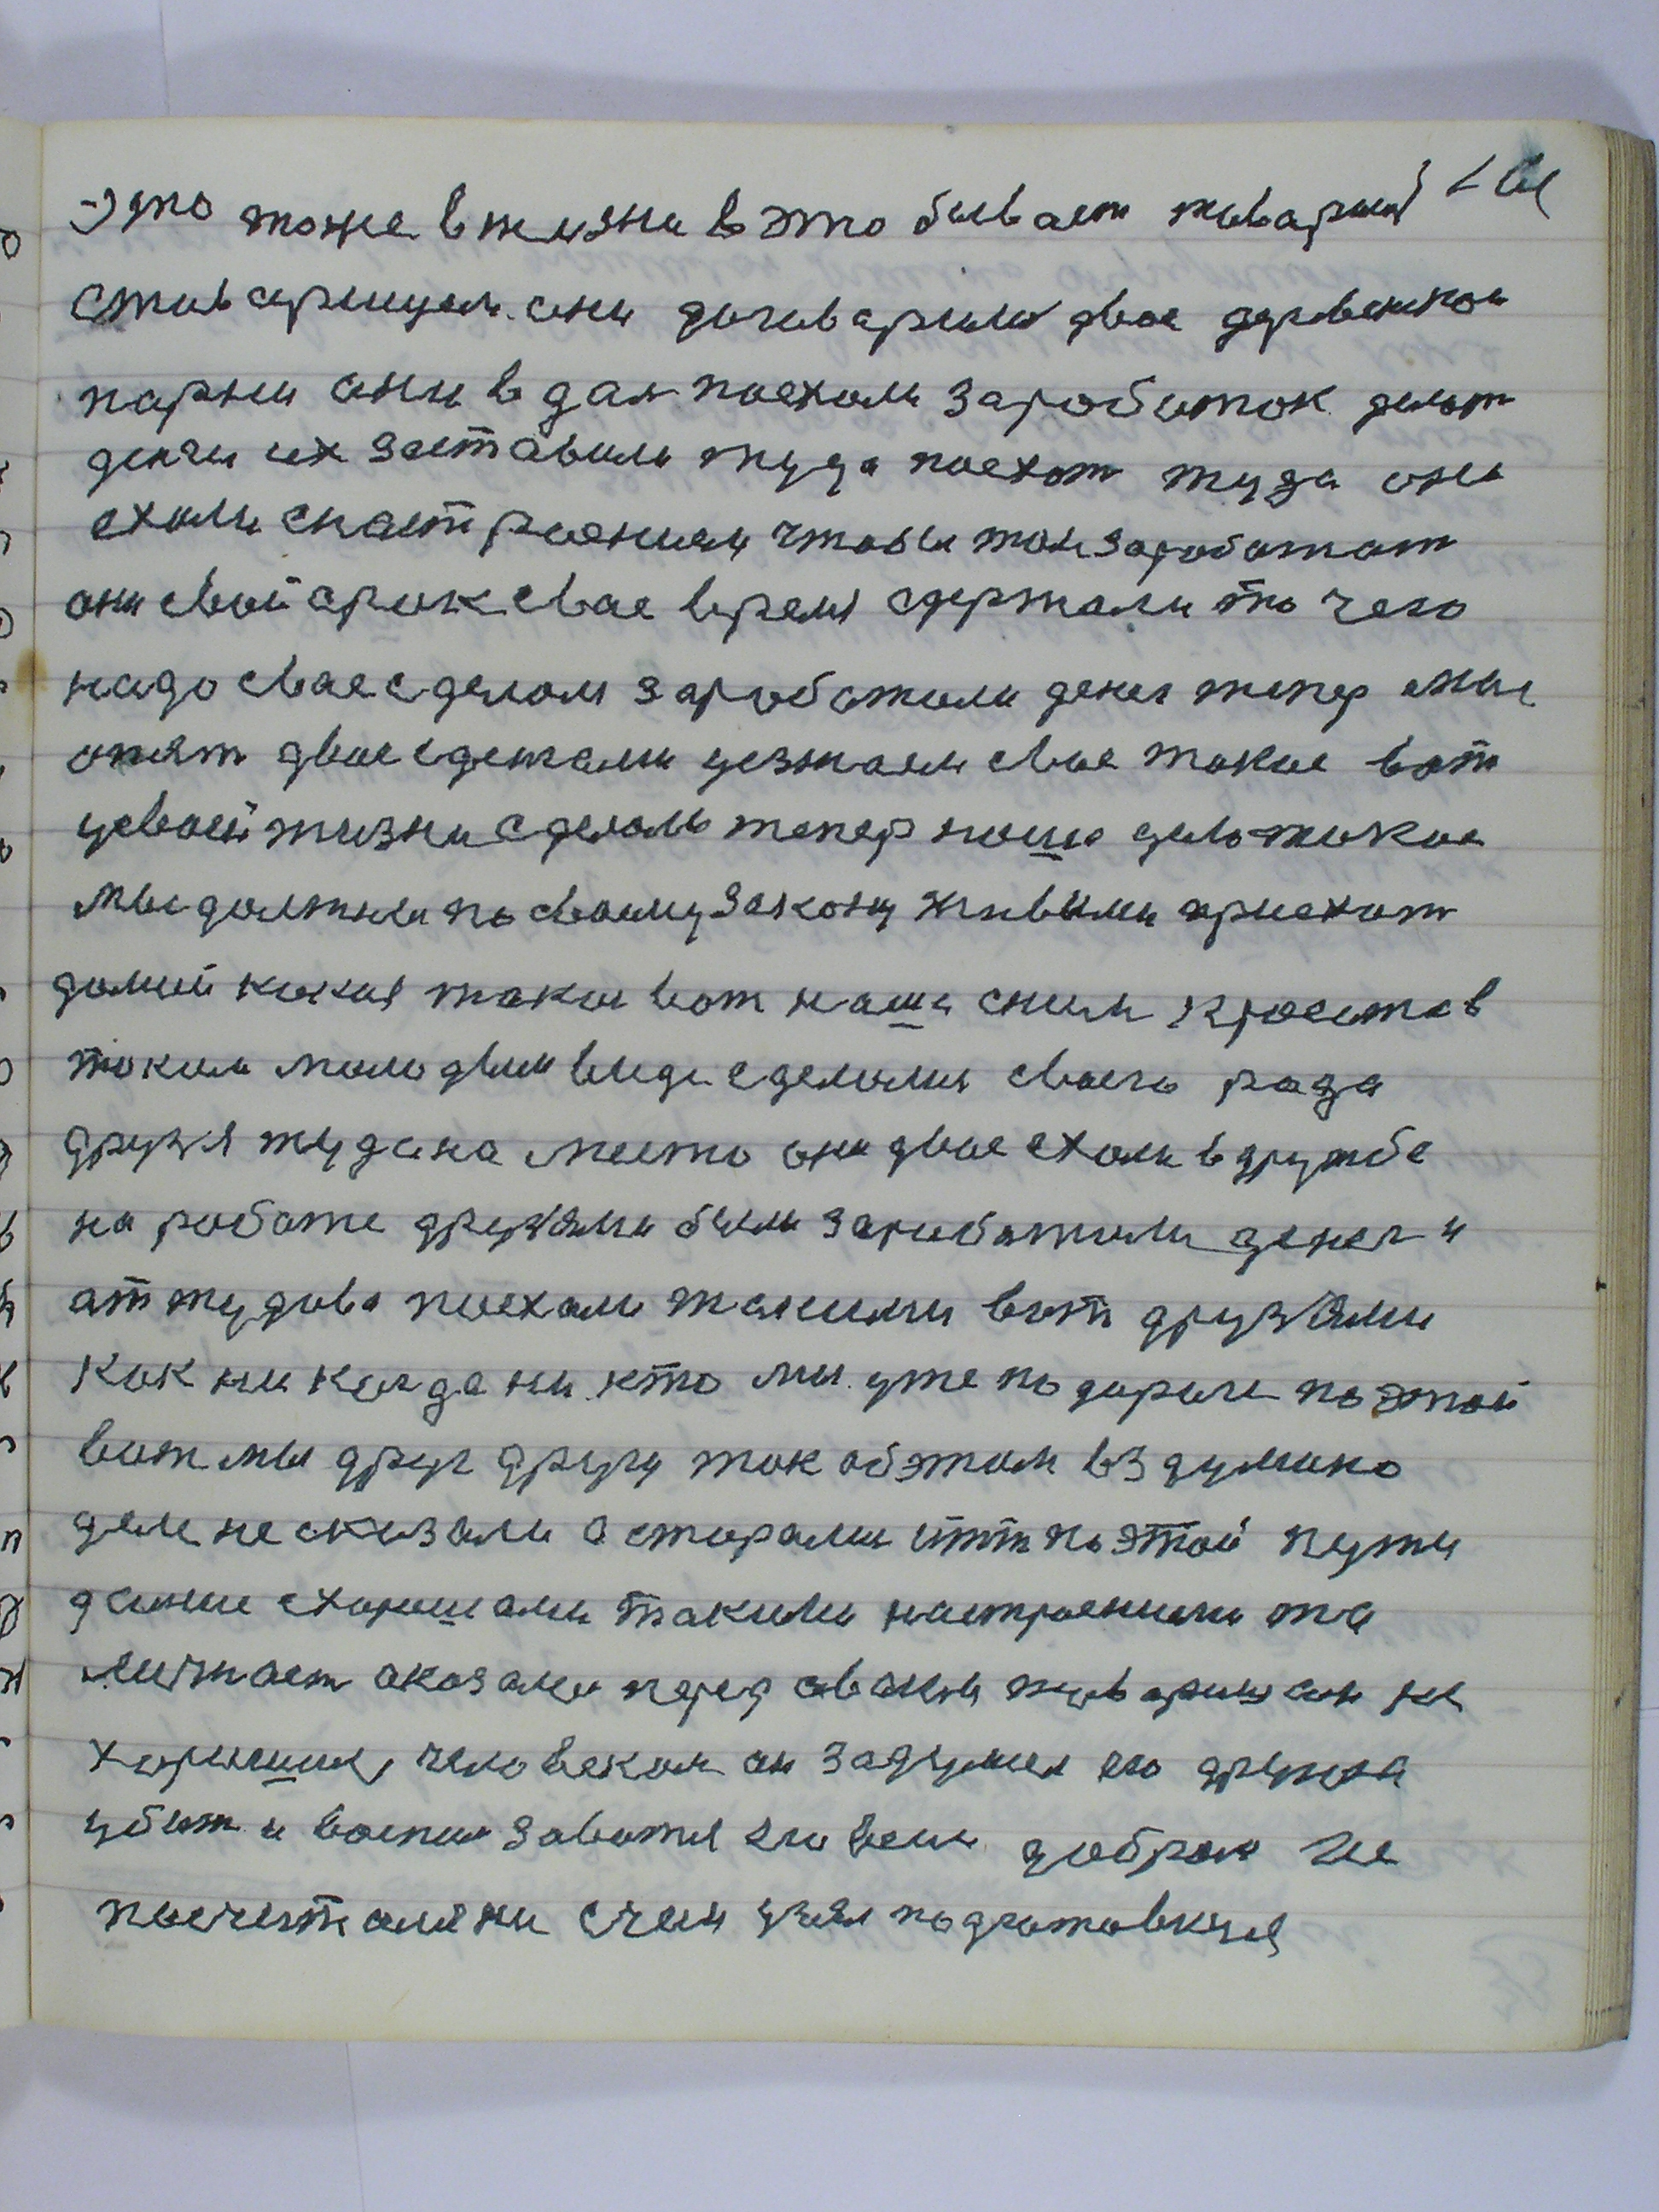 Это тоже в жизни в это бывает товарищ
стов арищем они договарили двое деревенкои
парни они в дал поехали заработок делот
денги их заставили туда поехот туда они
ехоли снастроением чтобы там заработат
они свой срок свае время сдержали то чего
надо свае сделали заработали денег тепер мы
опят двое сдетами уезжаем свае такое вот
усвоей жизни сделоли тепер наше дело такое
мы должны по своему закону живыми приехат
домой какия такие вот наши сними красота в
таком молодым виде сделолис своего рода
друзя туда на место они двое ехоли в дружбе
на работе друзями были заработали денег и
аттудова поехали такими вот друзями
как ни когда ни кто мы уже по дороге по этой
вот мы друг другу ток об этом вздумано
деле не сказали а сторами итти по этой пути
далше схорошами такими настроениеми та
мечтает оказалс перед своим товаришам не
харошим человеком он задумал его дружка
убит и воспол заватся его всем добром не
посчиталяни счем узял подготовкуя